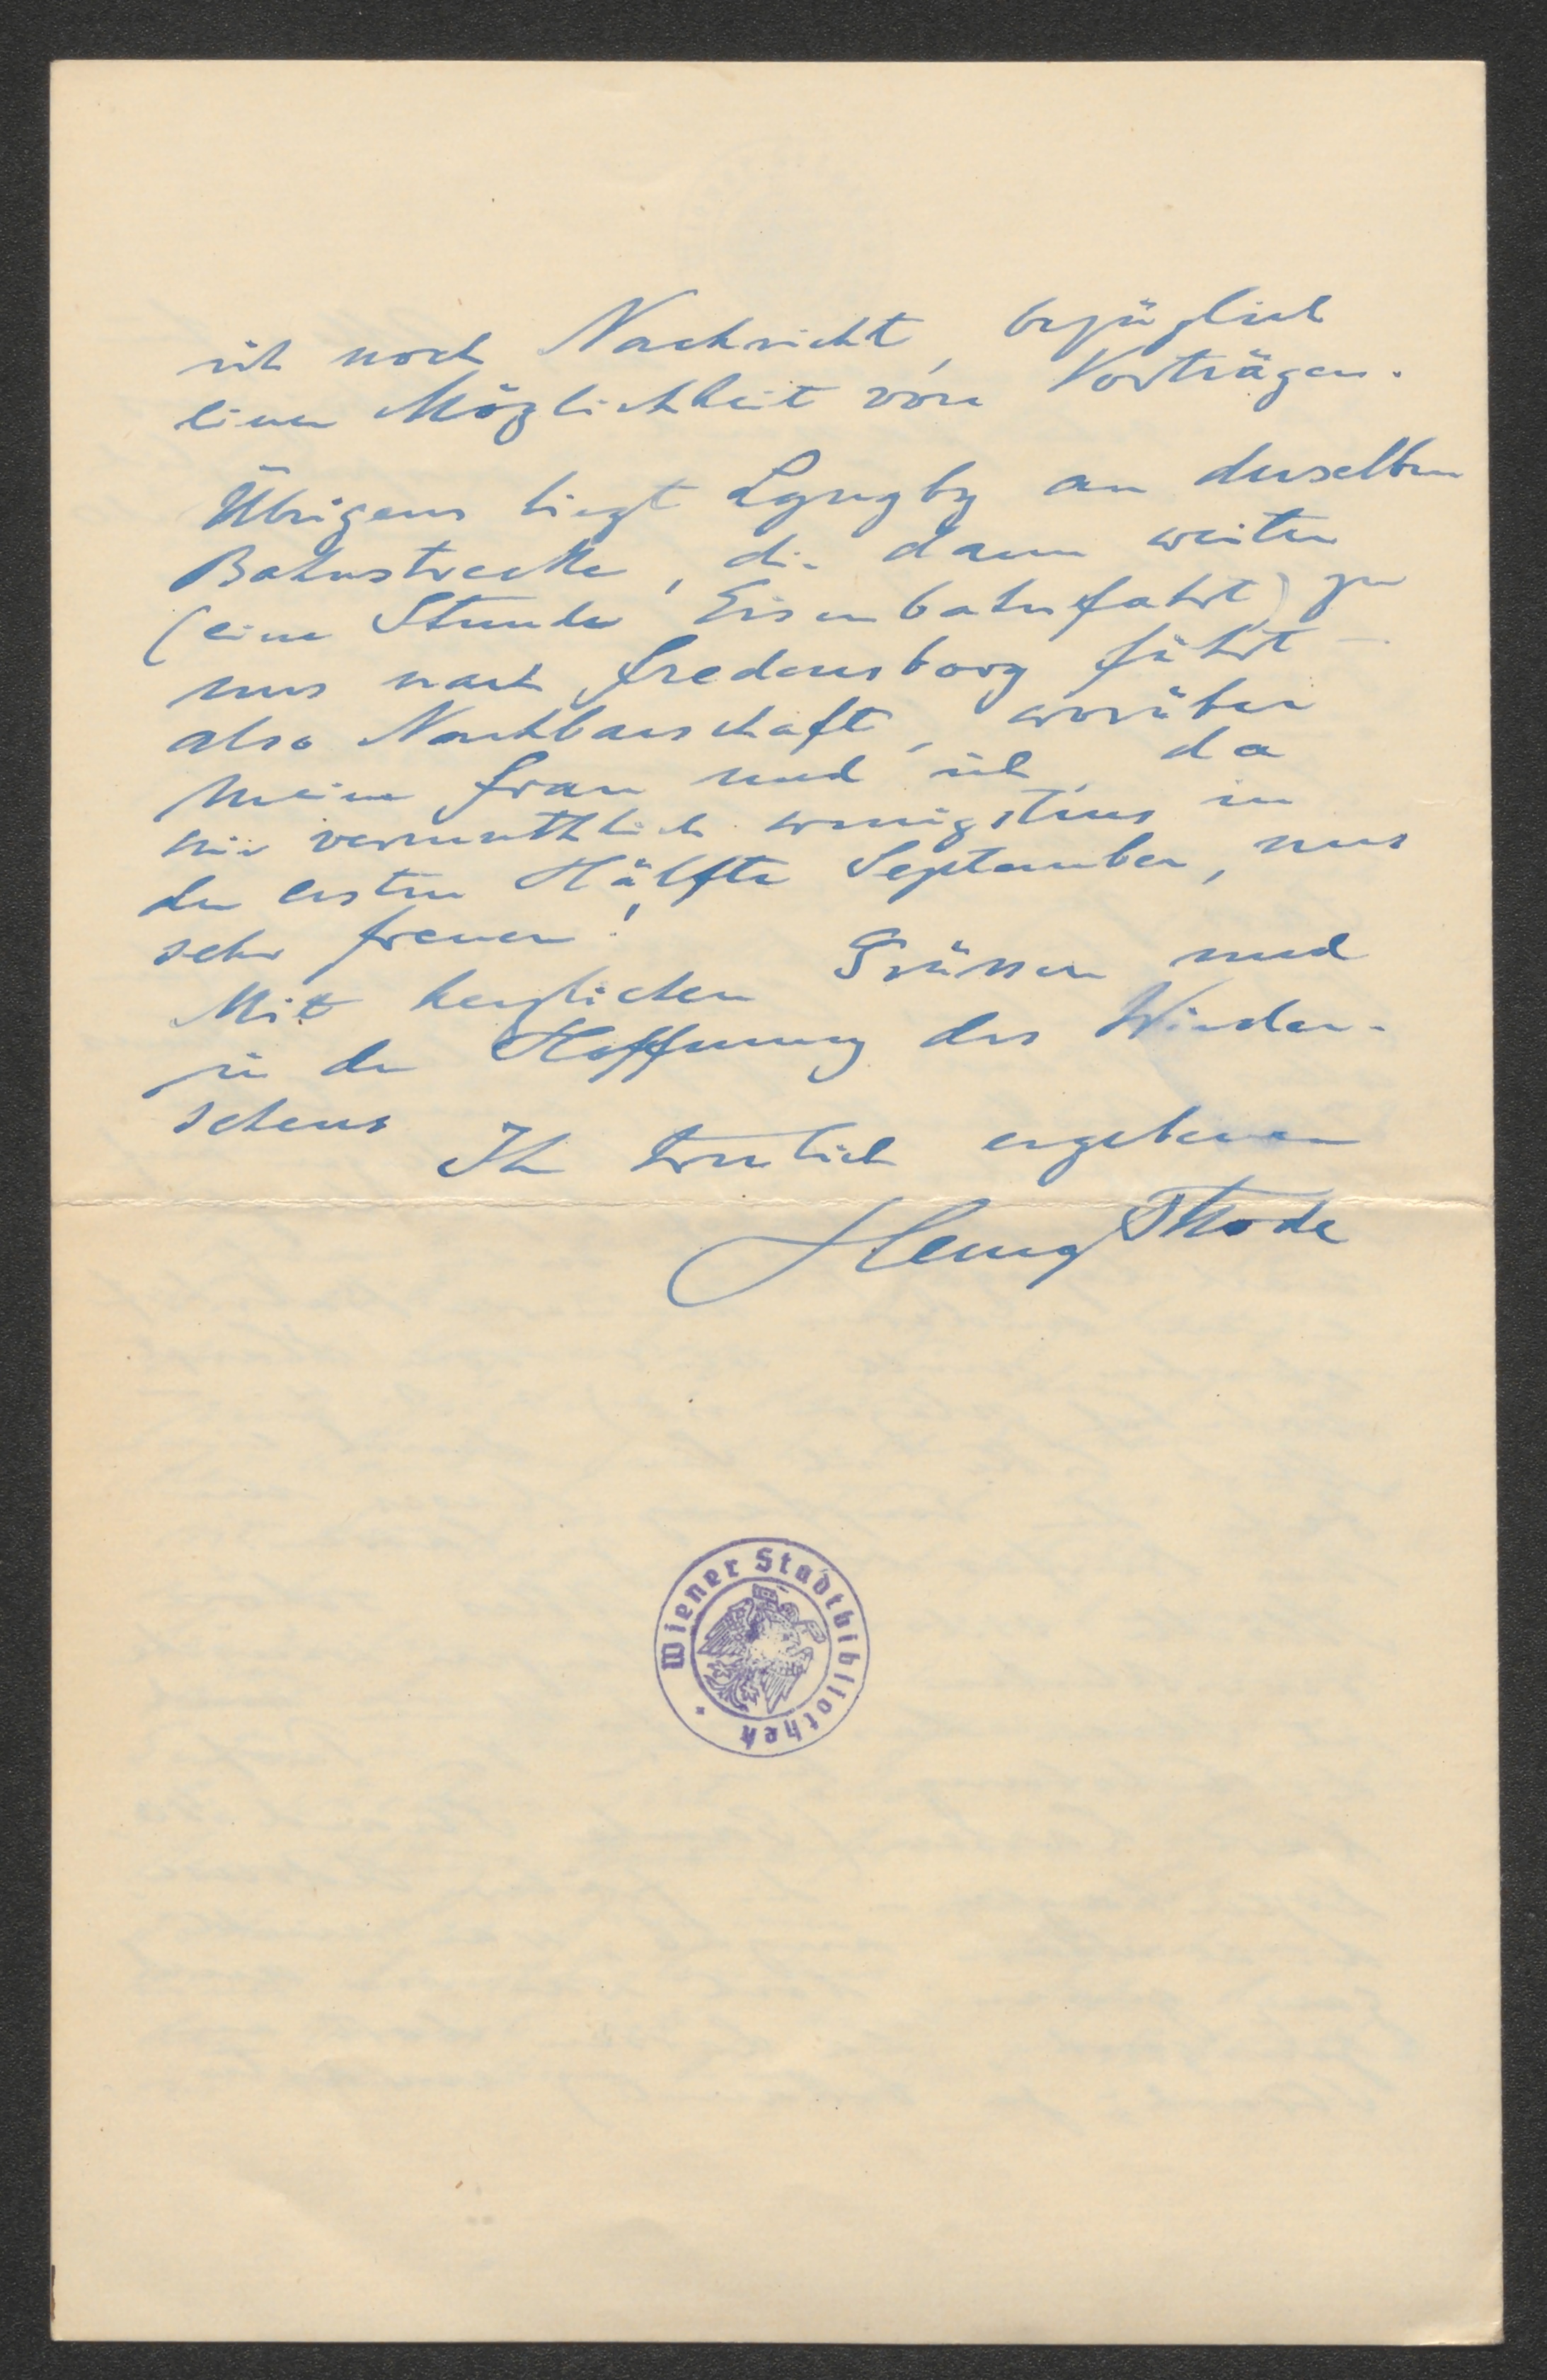 ich noch Nachricht, bezüglich
einer Möglichkeit von Vorträgen.
Übrigens liegt Lyngby an derselben
Bahnstrecke, die dann weiter
(eine Stunde Eisenbahnfahrt) zu
uns nach Fredensborg führt –
also Nachbarschaft, worüber
meine Frau und ich, da
wir vermuthlich wenigstens in
der ersten Hälfte September, uns
sehr freuen!
Mit herzlichen Grüssen und
in der Hoffnung des Wieder-
sehens
Ihr treulich ergebener
Henry Thode
Wiener Stadtbibliothek